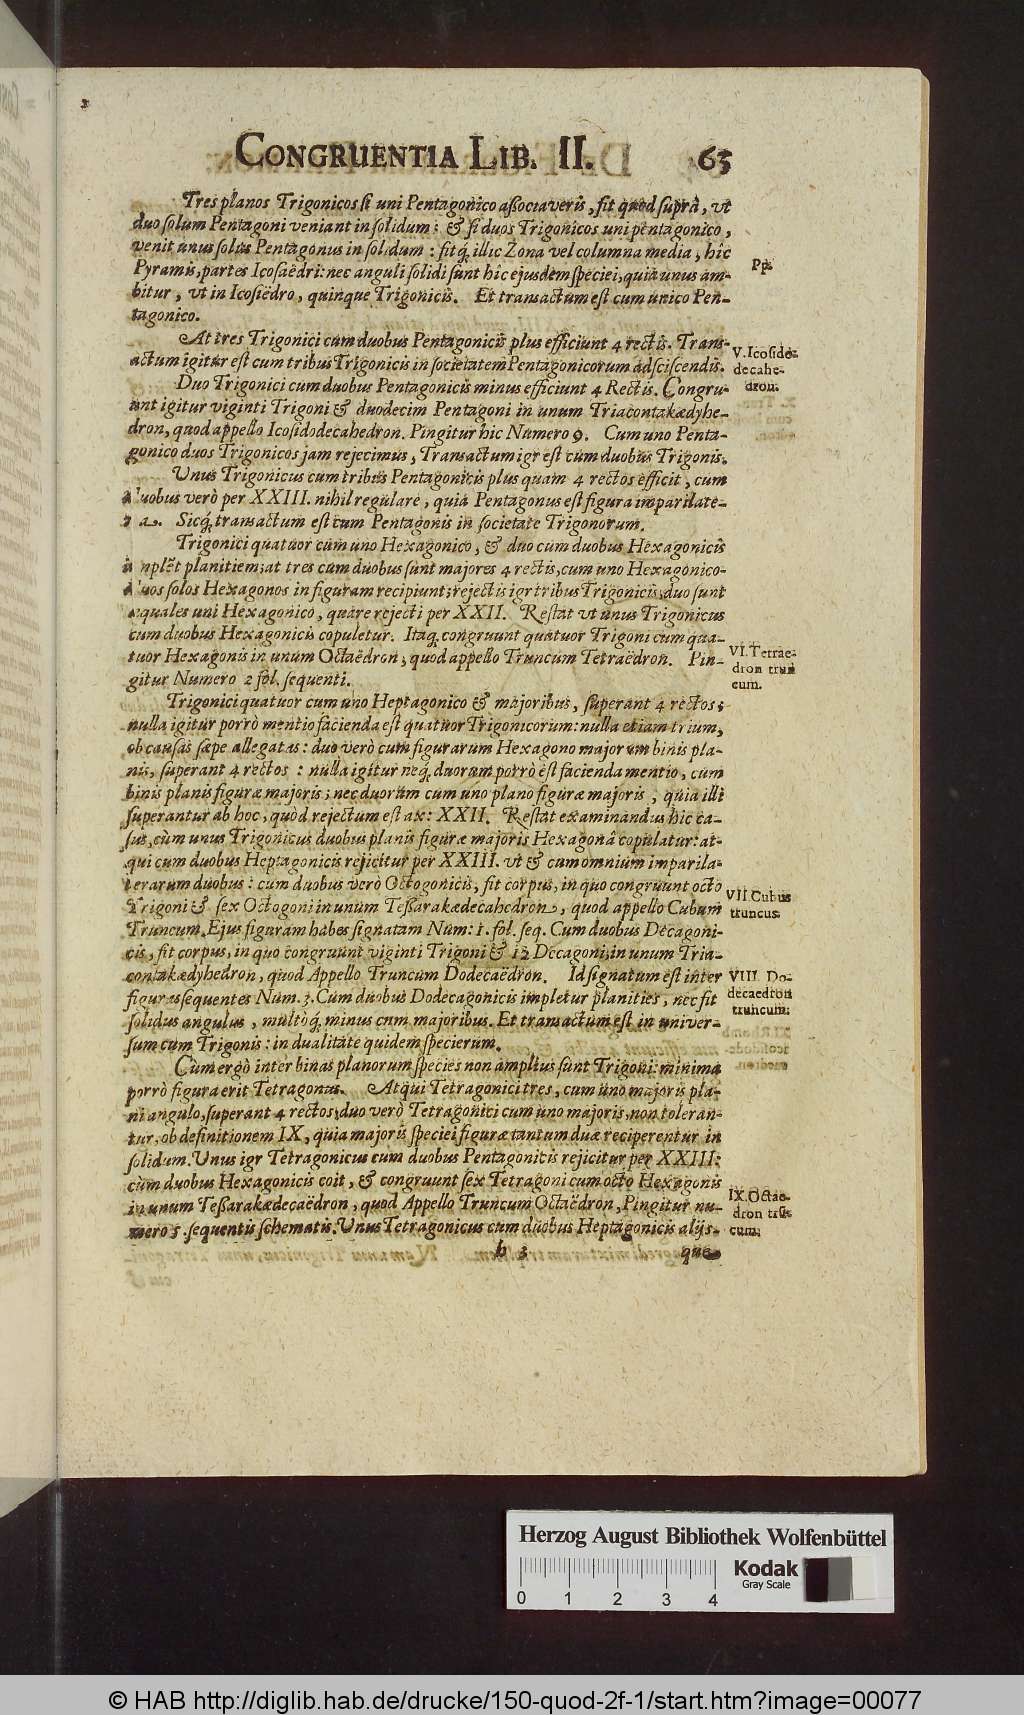 CONGRUENTIA LIB. II. 65
Tres planos Trigonicos si uni Pentagonico aßociaveris, fit quod suprà, ut
duo solum Pentagoni veniant in solidum: & si duos Trigonicos uni pentagonico,
venit unus solus Pentagonus in solidum: fitq́; illic Zona vel columna media, hîc
Pp.
Pyramis, partes Icosaëdri: nec anguli solidi sunt hic ejusdem speciei, quia unus am-
bitur, ut in Icosiëdro, quinque Trigonicis. Et transactum est cum unico Pen-
tagonico.
At tres Trigonici cum duobus Pentagonicis plus efficiunt 4 rectis. Trans-
V. Icosido-
actum igitur est cum tribus Trigonicis in societatem Pentagonicorum adsciscendis.
decahe-
Duo Trigonici cum duobus Pentagonicis minus efficiunt 4 Rectis. Congru-
dron.
unt igitur viginti Trigoni & duodecim Pentagoni in unum Triacontakædyhe-
dron, quod appello Icosidodecahedron. Pingitur hic Numero 9. Cum uno Penta-
gonico duos Trigonicos jam rejecimus, Transactum igr est cum duobus Trigonis.
Unus Trigonicus cum tribus Pentagonicis plus quam 4 rectos efficit, cum
duobus verò per XXIII. nihil regulare, quia Pentagonus est figura imparilate-
ra. Sicq́; transactum est cum Pentagonis in societate Trigonorum.
Trigonici quatuor cum uno Hexagonico, & duo cum duobus Hexagonicis
implēt planitiem; at tres cum duobus sunt majores 4 rectis, cum uno Hexagonico
duos solos Hexagonos in figuram recipiunt; rejectis igr tribus Trigonicis, duo sunt
æquales uni Hexagonico, quare rejecti per XXII. Restat ut unus Trigonicus
cum duobus Hexagonicis copuletur. Itaq́; congruunt quatuor Trigoni cum qua-
VI. Tetrae-
tuor Hexagonis in unum Octaëdron, quod appello Truncum Tetraëdron. Pin-
dron trun
gitur Numero 2 fol. sequenti.
cum.
Trigonici quatuor cum uno Heptagonico & majoribus, superant 4 rectos;
nulla igitur porrò mentio facienda est quatuor Trigonicorum: nulla etiam trium,
ob causas sæpe allegatas: duo verò cum figurarum Hexagono majorum binis pla-
nis, superant 4 rectos: nulla igitur neq́; duorum porrò est facienda mentio, cum
binis planis figuræ majoris; nec duorum cum uno plano figuræ majoris, quia illi
superantur ab hoc, quod rejectum est ax: XXII. Restat examinandus hic ca-
sus, cùm unus Trigonicus duobus planis figuræ majoris Hexagonâ copulatur: at-
qui cum duobus Heptagonicis rejicitur per XXIII. ut & cum omnium imparila-
terarum duobus: cum duobus verò Octogonicis, fit corpus, in quo congruunt octo
VII Cubus
Trigoni & sex Octogoni in unum Teßarakædecahedron, quod appello Cubum
truncus.
Truncum. Ejus figuram habes signatam Num: 1. fol. seq. Cum duobus Decagoni-
cis, fit corpus, in quo congruunt viginti Trigoni & 12 Decagoni, in unum Tria-
contakædyhedron, quod Appello Truncum Dodecaëdron. Id signatum est inter
VIII. Do-
figuras sequentes Num. 3. Cum duobus Dodecagonicis impletur planities, nec fit
decaedron
solidus angulus, multòq́; minus cum majoribus. Et transactum est in univer-
truncum.
sum cum Trigonis: in dualitate quidem specierum.
Cùm ergò inter binas planorum species non amplius sunt Trigoni: minima
porrò figura erit Tetragonus. Atqui Tetragonici tres, cum uno majoris pla-
ni angulo, superant 4 rectos; duo verò Tetragonici cum uno majoris, non toleran-
tur, ob definitionem IX, quia majoris speciei figuræ tantum duæ reciperentur in
solidum. Unus igr Tetragonicus cum duobus Pentagonicis rejicitur per XXIII:
cùm duobus Hexagonicis coit, & congruunt sex Tetragoni cum octo Hexagonis
IX. Octae-
in unum Teßarakædecaëdron, quod Appello Truncum Octaëdron, Pingitur nu-
dron trũ-
mero 5. sequentis schematis. Unus Tetragonicus cum duobus Heptagonicis alijs-
cum.
h 3 que
Herzog August Bibliothek Wolfenbüttel
Kodak
Gray Scale
0 1 2 3 4
© HAB http://diglib.hab.de/drucke/150-quod-2f-1/start.htm?image=00077